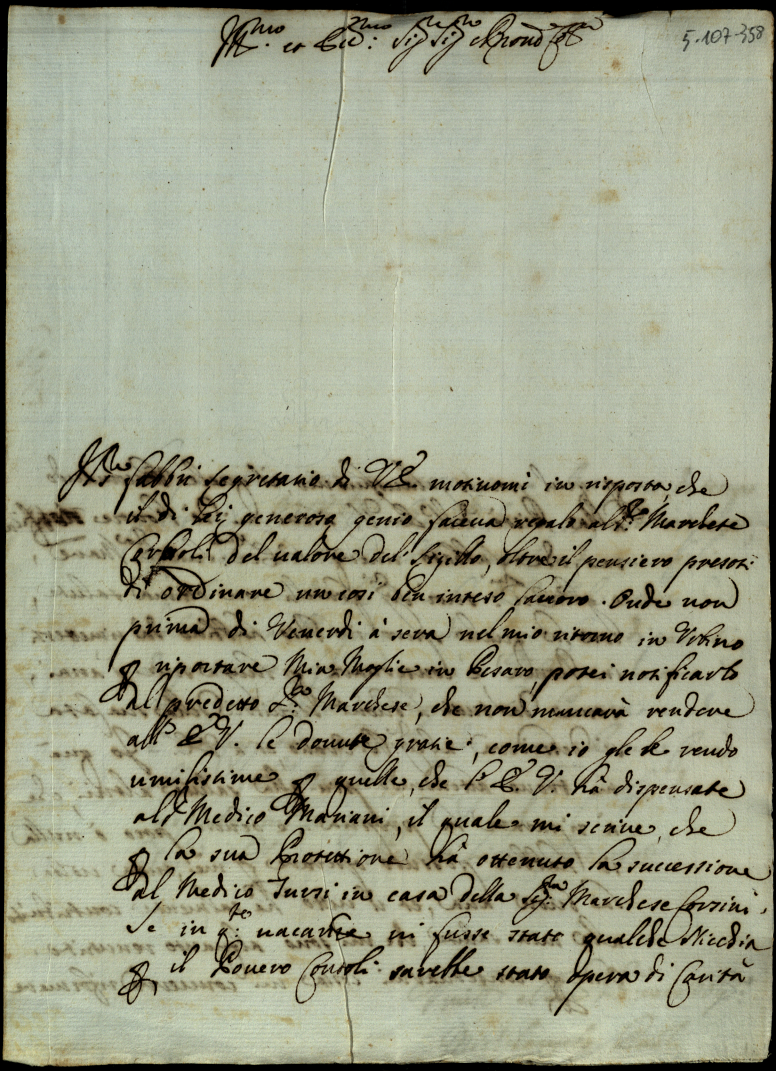 Ill.mo et Ecc.mo Sig.r Sig.r e Pron Col.mo
5-107-358
Il Sr Fabbri Segretario di V.E. motivomi in risposta, che
il di Lei generoso genio faceva regalo all Sr Marchese
del valore del Sigillo, oltre il pensiero presosi
di ordinare un così ben inteso lavoro. Onde non
prima di Venerdi à sera nel mio ritorno in Urbino
p riportare Mia Moglie in Pesaro, potei notificarlo
al predetto Sr Marchese, che non mancarà rendere
all' E.V. le dovute grazie, come io gle le rendo
umilissime p quelle, che l'E.V. hà dispensate
al Medico Mariani, il quale mi scrive, che
p la sua Protettione hà ottenuto la successione
al Medico Tursi in casa della Sig.ra Marchese Corsini.
Se in q.te vacanze vi fusse stato qualche Nicchia
p il Povero Consoli sarebbe stato opera di Carità